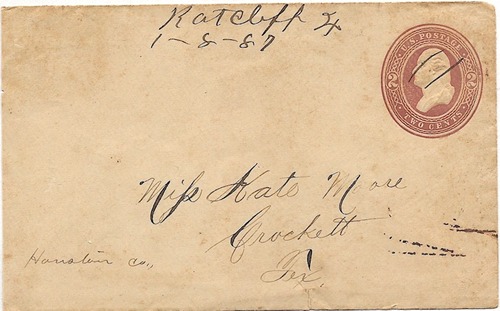 Ratcliff
1-8-87
U.S. POSTAGE
2 2
TWO CENTS
Miss Kate Moore
Crockett
Tex
Houston co.,